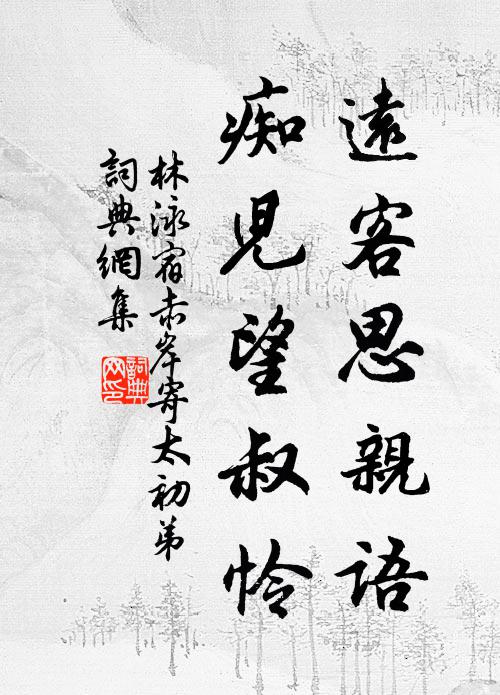 遠客思親語
痴兒望叔怜
林泳宿赤岸寄太初弟
詞典網集
詞典网印